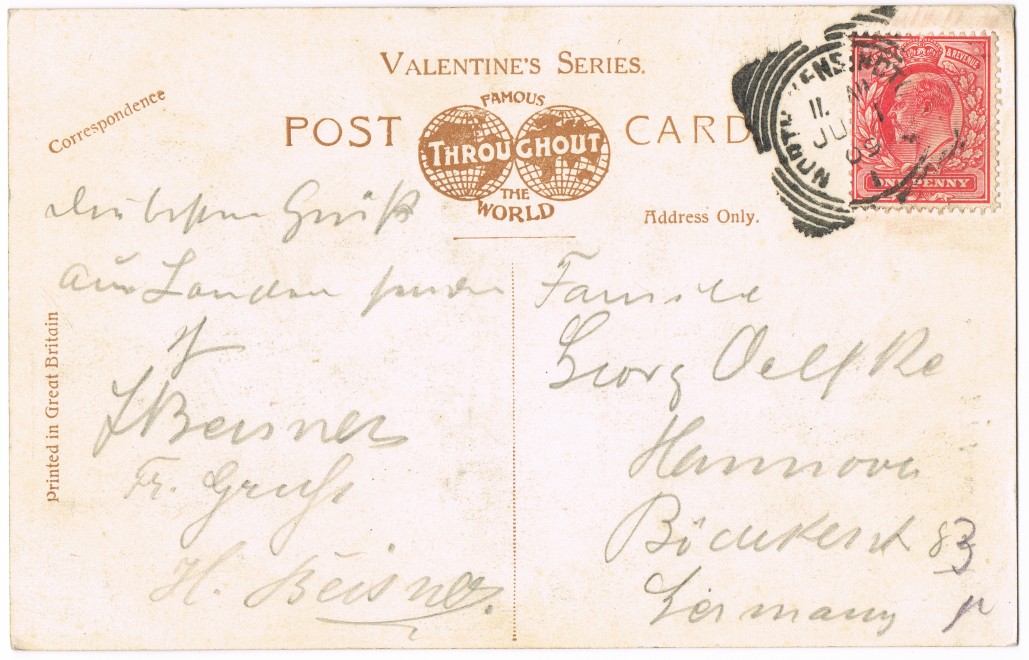 VALENTINE'S SERIES.
Correspondence
POST CARD
FAMOUS
THROUGHOUT
THE
WORLD
Address Only.
NORTH KENSINGT
11. AM
JU 1
09
& REVENUE
ONE PENNY
Printed in Great Britain
Die besten Grüße
aus London senden
Beisner
Fr. Gruß
H. Beisner.
Familie
Georg Oelfke
Hannover
Bödekerst 83
Germany